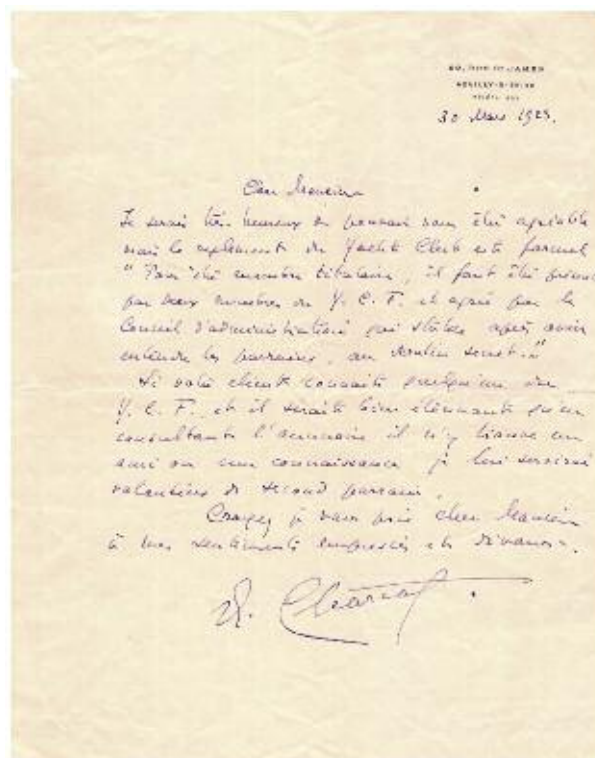 30 Mars 1923.
Cher Monsieur
Je serais très heureux de pouvoir vous être agréable
mais le règlement du Yacht Club est formel
" Pour être membre titulaire, il faut être présenté
par deux membres du Y. C. F. et agréé par le
Conseil d'administration qui statue après avoir
entendu les parrains, au scrutin secret."
Si votre client connait quelqu'un du
Y. C. F. et il serait bien étonnant qu'en
consultant l'annuaire il n'y trouve un
ami ou une connaissance je lui servirai
volontiers de second parrain.
Croyez je vous prie cher Monsieur
à mes sentiments empressés et dévoués.
Charcot